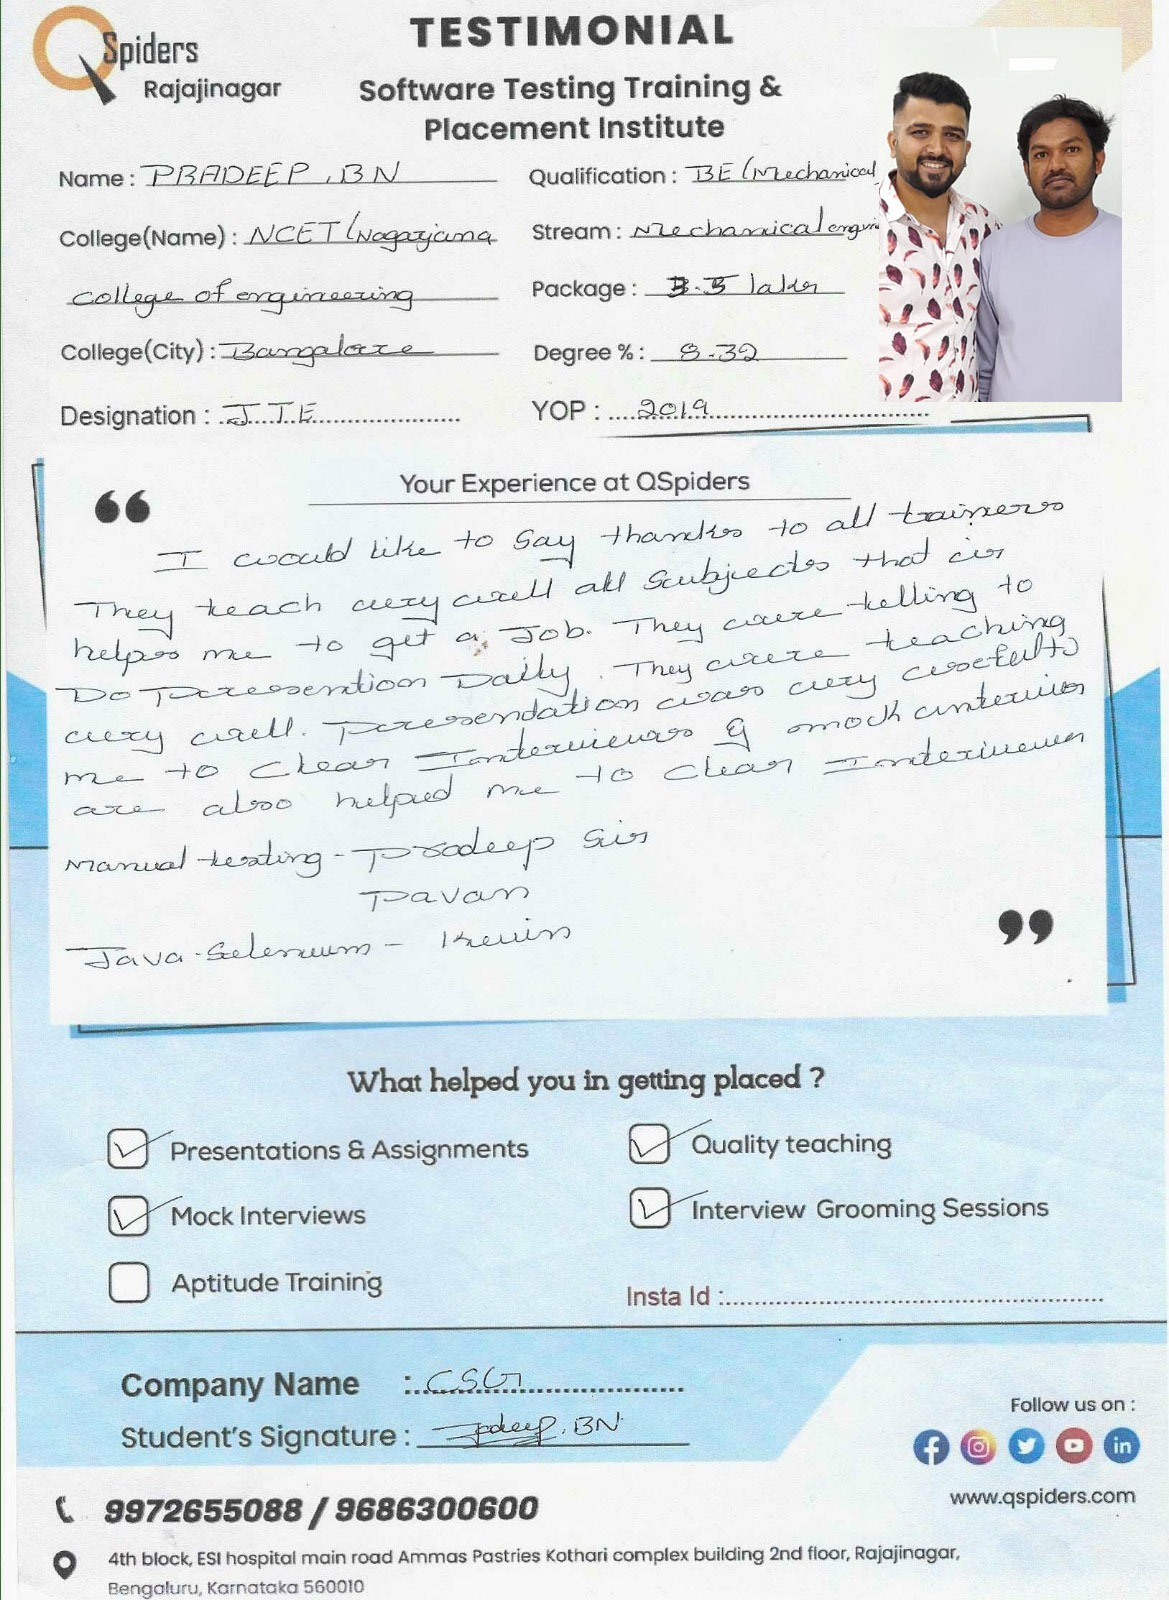 QSpiders
Rajajinagar
TESTIMONIAL
Software Testing Training &
Placement Institute
Name : PRADEEP .BN
Qualification : BE (Mechanical
College(Name) : NCET (Nagarjuna
Stream : Mechanical
college of engineering
Package : 3.5 lakhs
College(City) : Bangalore
Degree % : 8.32
Designation : J.T.E
YOP : 2019
Your Experience at QSpiders
I would like to say thanks to all trainers
They teach very well all subjects that is
helps me to get a Job. They were telling to
Do Presention Daily. They were teaching
very well. Presendation was very usefull to
me to clear Interviews & mock interview
are also helped me to clear Interviewer
Manual testing - Pradeep Sir
Pavan
Java-Selenium - Kevin
What helped you in getting placed ?
Presentations & Assignments
Quality teaching
Mock Interviews
Interview Grooming Sessions
Aptitude Training
Insta Id :
Company Name : CSG
Student's Signature : Pradeep.BN
Follow us on :
www.qspiders.com
9972655088 / 9686300600
4th block, ESI hospital main road Ammas Pastries Kothari complex building 2nd floor, Rajajinagar,
Bengaluru, Karnataka 560010